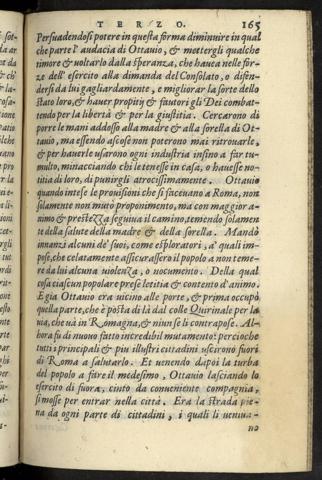 TERZO. 165
Persuadendosi potere in questa forma diminuire in qual
che parte l'audacia di Ottauio, & mettergli qualche
timore & voltarlo dalla speranza, che hauea nelle for-
ze dell'esercito alla dimanda del Consolato, o difen-
dersi da lui gagliardamente, e migliorar la sorte dello
stato loro, & hauer propitÿ & fautori gli Dei combat-
tendo per la libertà & per la giustitia. Cercarono di
porre le mani addosso alla madre & alla sorella di Ot-
tauio, ma essendo ascose non poterono mai ritrouarle,
& per hauerle usarono ogni industria insino a far tu-
multo, minacciando chi le tenesse in casa, o hauesse no-
titia di loro, di punirgli atrocissimamente. Ottauio
quando intese le prouisioni che si faceuano a Roma, non
solamente non mutò proponimento, ma con maggior a-
nimo & prestezza seguiua il camino, temendo solamen
te della salute della madre & della sorella. Mandò
innanzi alcuni de' suoi, come esploratori, a' quali im-
pose, che celatamente assicurassero il popolo a non teme-
re da lui alcuna violenza, o nocumento. Della qual
cosa ciascun popolare prese letitia & contento d'animo.
E gia Ottauio era uicino alle porte, & prima occupò
quella parte, che è posta di là dal colle Quirinale per la
uia, che uà in Romagna, & niun se li contrapose. Al-
hora fu di nuouo fatto incredibil mutamento: percioche
tutti i principali & piu illustri cittadini uscirono fuori
di Roma a salutarlo. Et uenendo dapoi la turba
del popolo a fare il medesimo, Ottauio lasciando lo
esercito di fuora, cinto da conueniente compagnia,
si mosse per entrar nella città. Era la strada pie-
na da ogni parte di cittadini, i quali li ueniua-
no